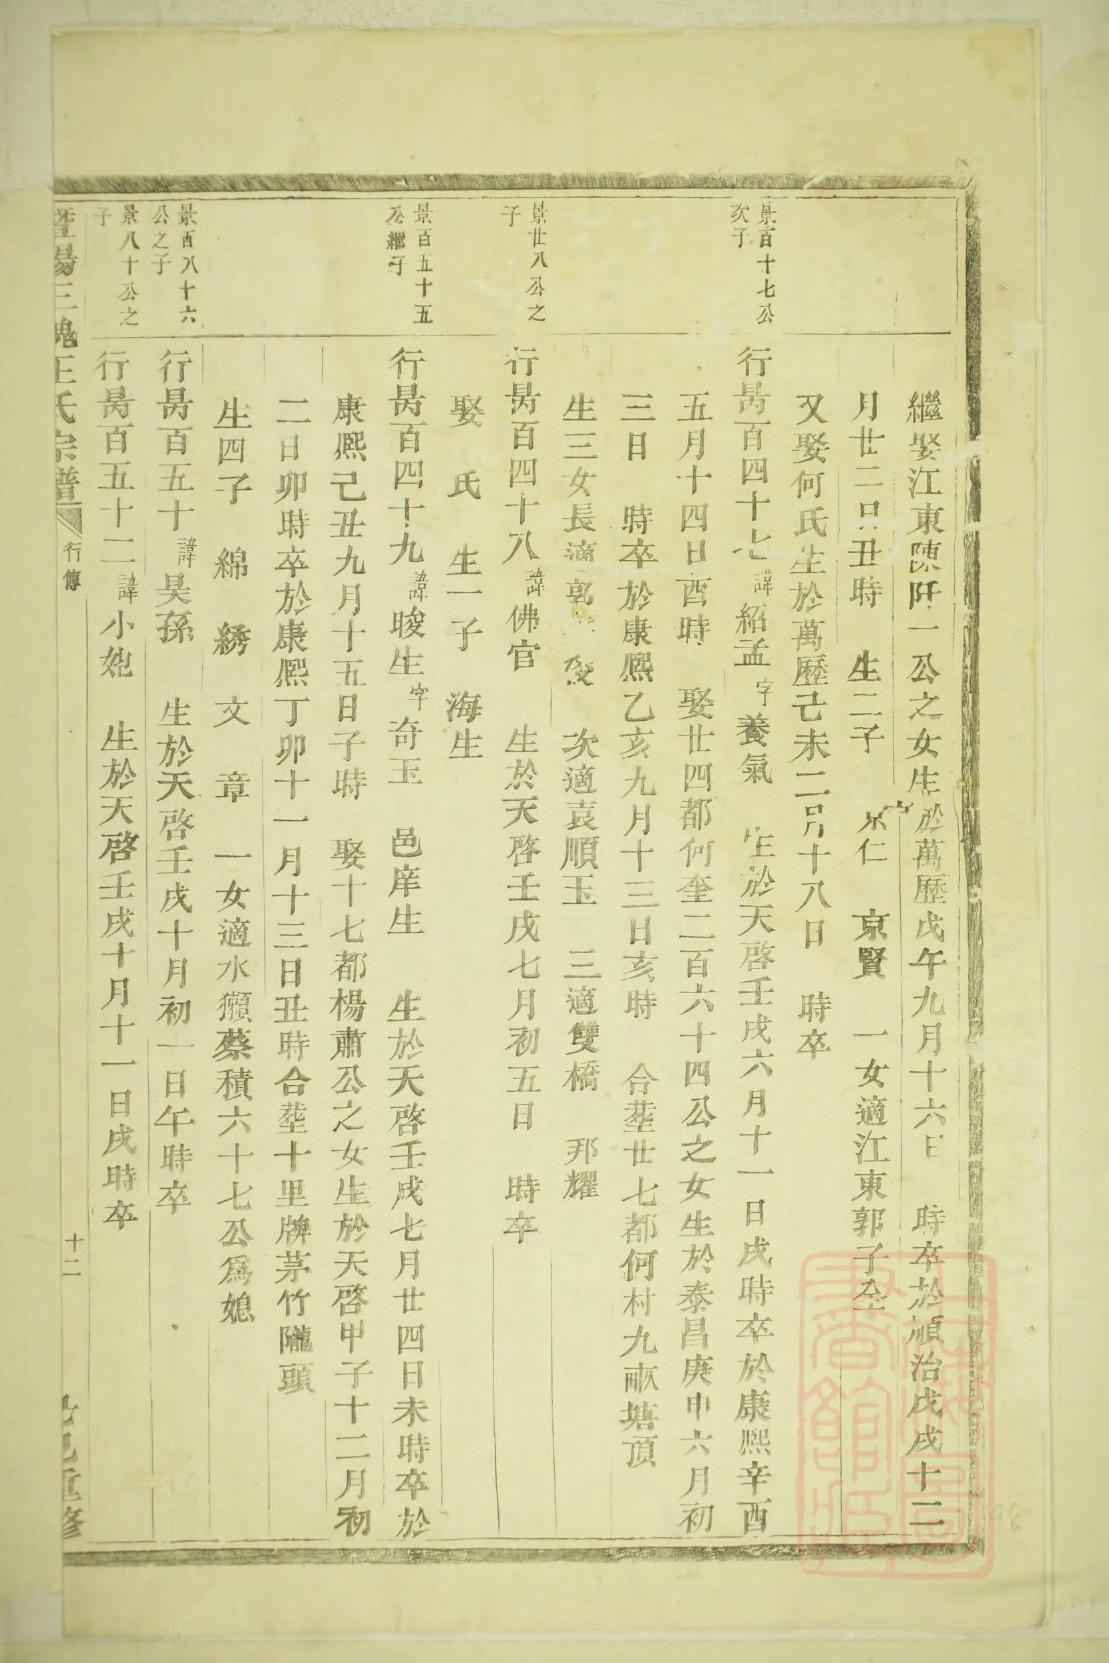 繼娶江東陳阡一公之女生於萬歷戊午九月十六日 時卒於順治戊戌十二
月廿二日丑時 生二子 京仁 京賢 一女適江東郭子全
又娶何氏生於萬歷己未二月十八日 時卒
景百十七公
次子
行昺百四十七諱紹孟字養氣 生於天啓壬戌六月十一日戌時卒於康熙辛酉
五月十四日酉時 娶廿四都何奎二百六十四公之女生於泰昌庚申六月初
三日 時卒於康熙乙亥九月十三日亥時 合塟廿七都何村九畝塘頂
生三女長適郭 俊 次適袁順玉 三適雙橋 邦耀
景廿八公之
子
行昺百四十八諱佛官 生於天啓壬戌七月初五日 時卒
娶 氏 生一子 海生
景百五十五
公繼子
行昺百四十九諱晙生字奇玉 邑庠生 生於天啓壬戌七月廿四日未時卒於
康熙己丑九月十五日子時 娶十七都楊肅公之女生於天啓甲子十二月初
二日卯時卒於康熙丁卯十一月十三日丑時合塟十里牌茅竹隴頭
生四子 綿 綉 文 章 一女適水獺蔡積六十七公爲媳
景百八十六
公之子
行昺百五十諱昊孫 生於天啓壬戌十月初一日午時卒
景八十公之
子
行昺百五十二諱小妃 生於天啓壬戌十月十一日戌時卒
暨陽三槐王氏宗譜 行傳 十二 己巳重修